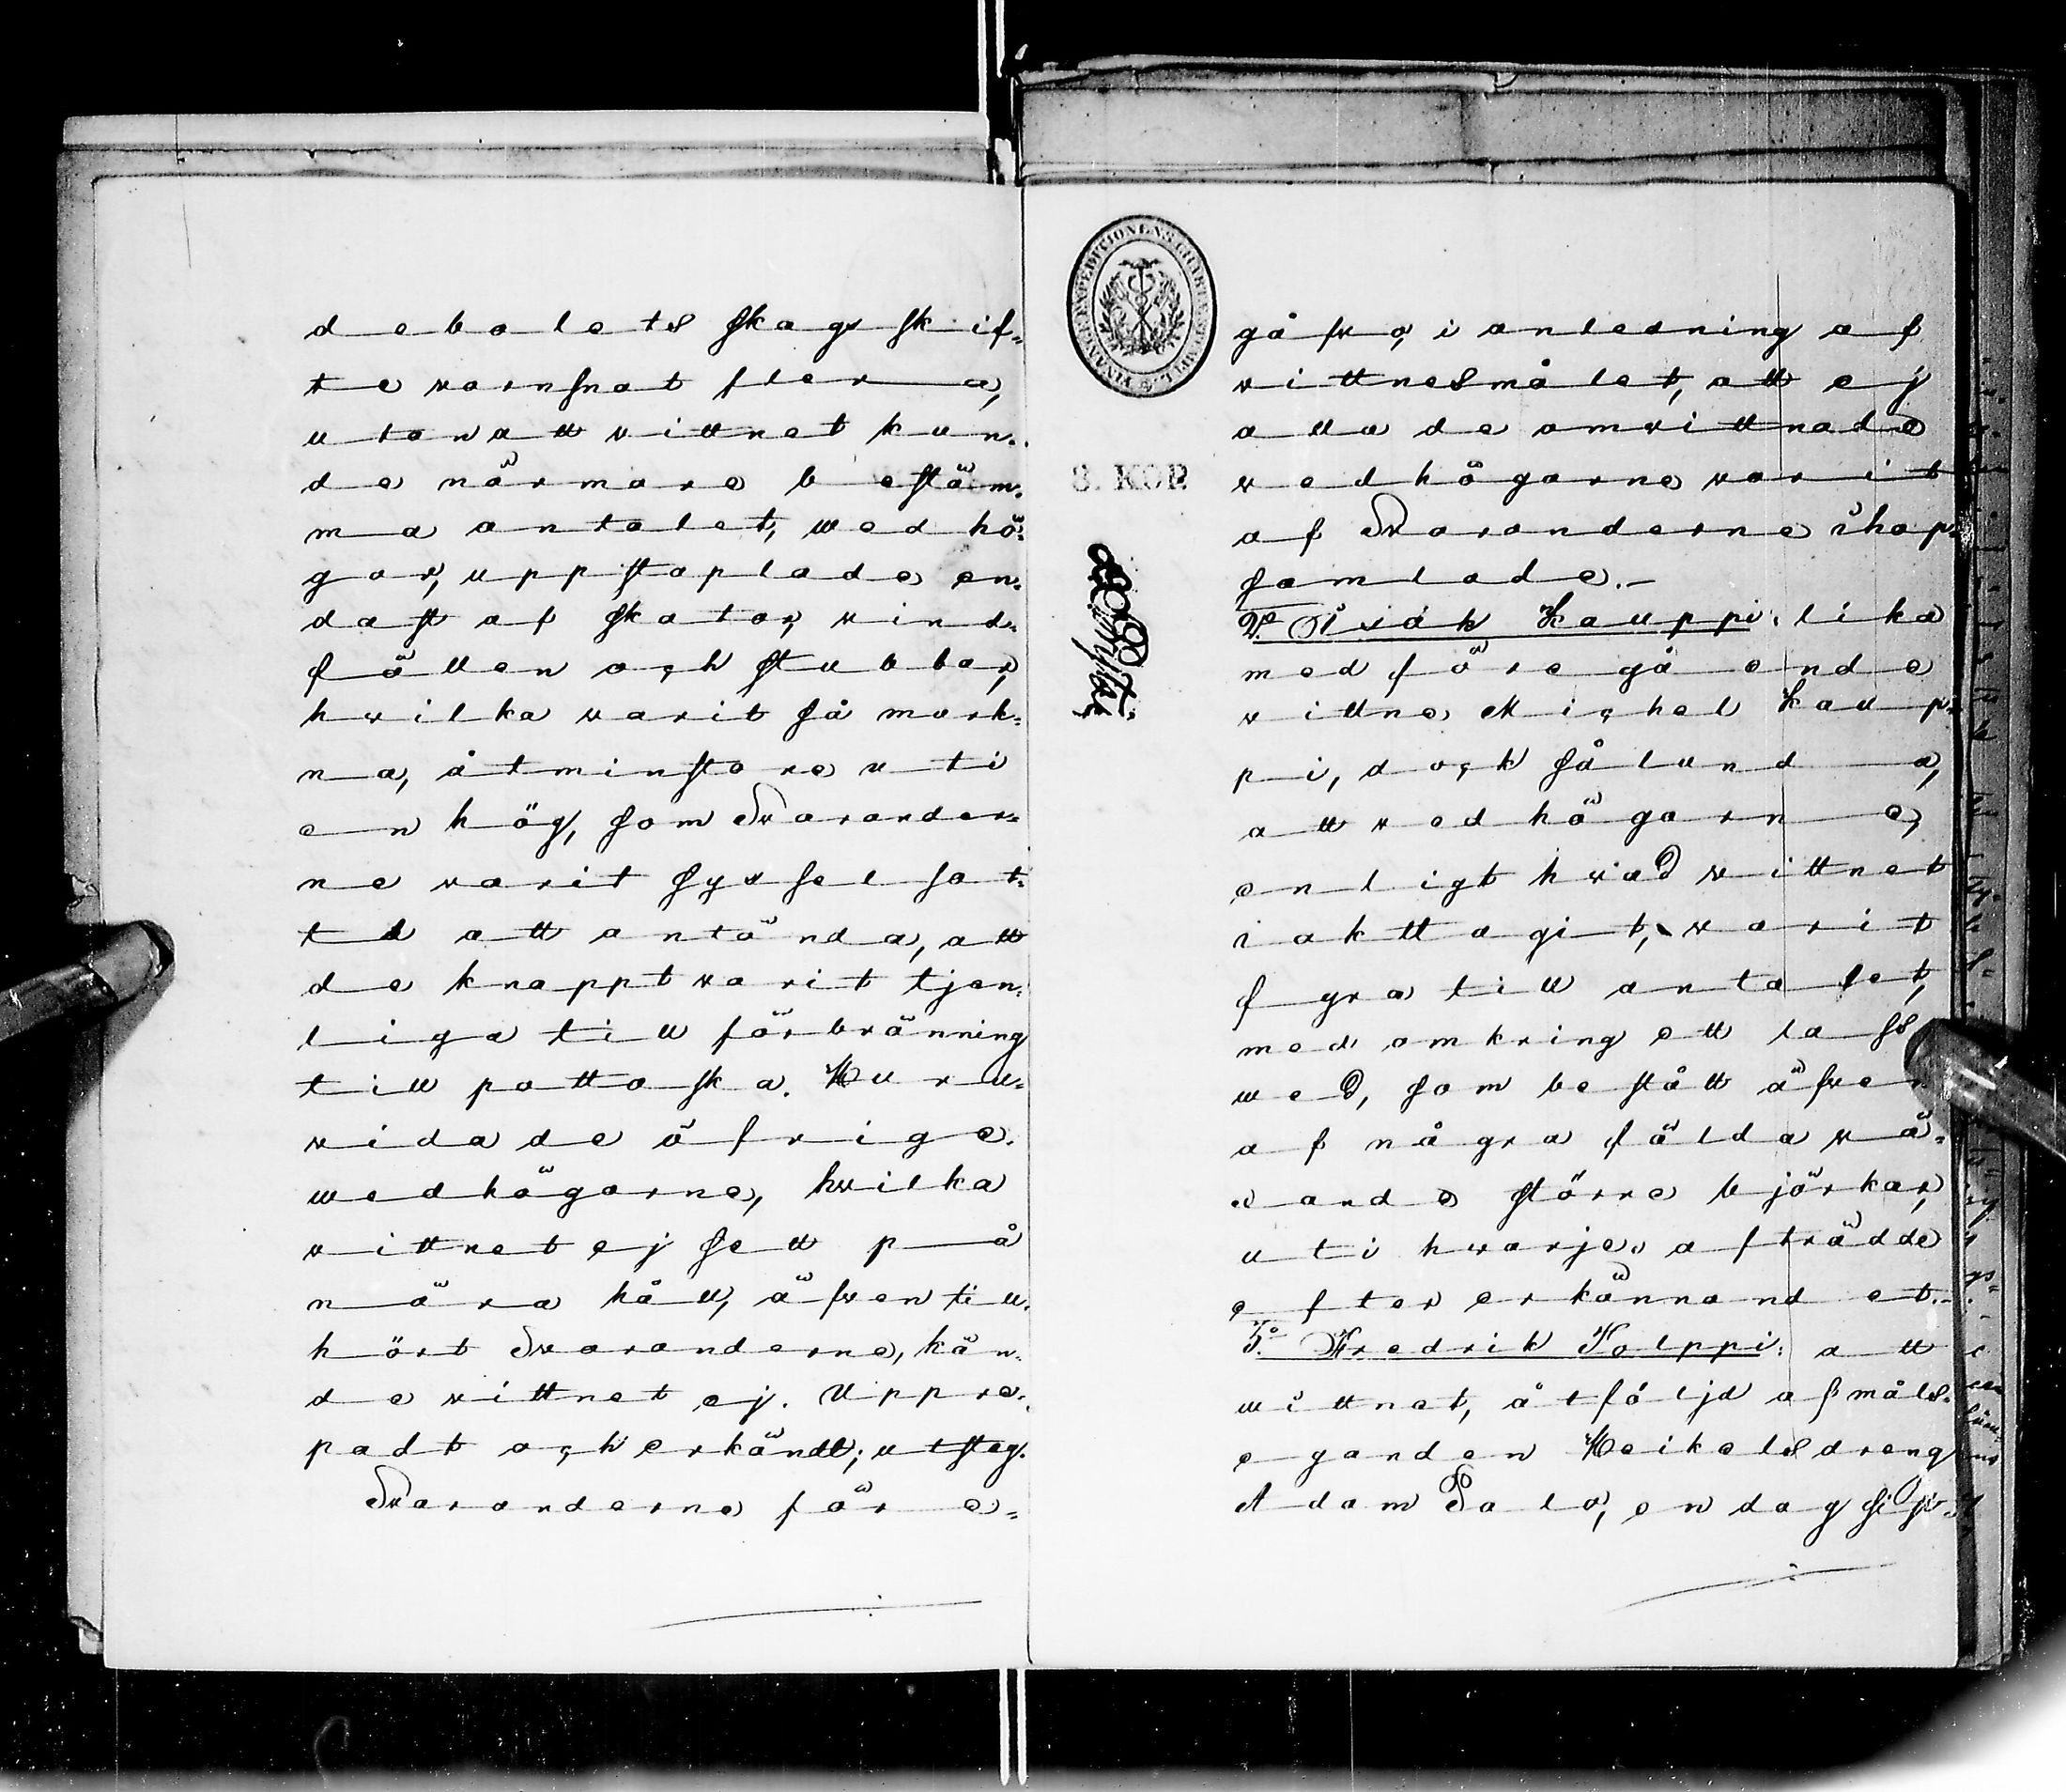 debolets skogsskif-
te varsnat flera,
utan att vittnet kun-
de närmare bestäm-
ma antalet, wedhö-
gar, uppstaplade en-
dast af skator, vind-
fällen och stubbar,
hvilka varit så mosk-
na, åtminstone uti
en hög, som Svarander-
ne varit sysselsat-
te att antända, att
de knappt varit tjen-
liga till förbränning
till pottaska. Huru-
vida de öfrige
wedhögarne, hvilka
vittnet ej sett på
nära håll, äfven till-
hört Svaranderne, kän-
de vittnet ej. Uppre-
padt och erkändt; utsteg.
Svaranderne före-
FINANCE EXPEDITIONENS CHARTÆ
8. KOP.
gåfvo, i anledning af
vittnesmålet, att ej
alla de omvittnade
vedhögarne varit
af Svaranderne ihop-
samlade.-
2o. Isak Kauppi: lika
med föregående
vittne Michel Kaup-
pi, dock sålunda,
att vedhögarne,
enligt hvad vittnet
iakttagit, varit
fyra till antalet,
med omkring ett lass
wed, som bestått äfven
af några fälda vä-
xande större björkar,
uti hvarje; afträdde
efter erkännandet.-
3o. Fredrik Tolppi: att
wittnet, åtföljd af måls-
eganden Heikels dreng
Adam Salo, en dag sist-